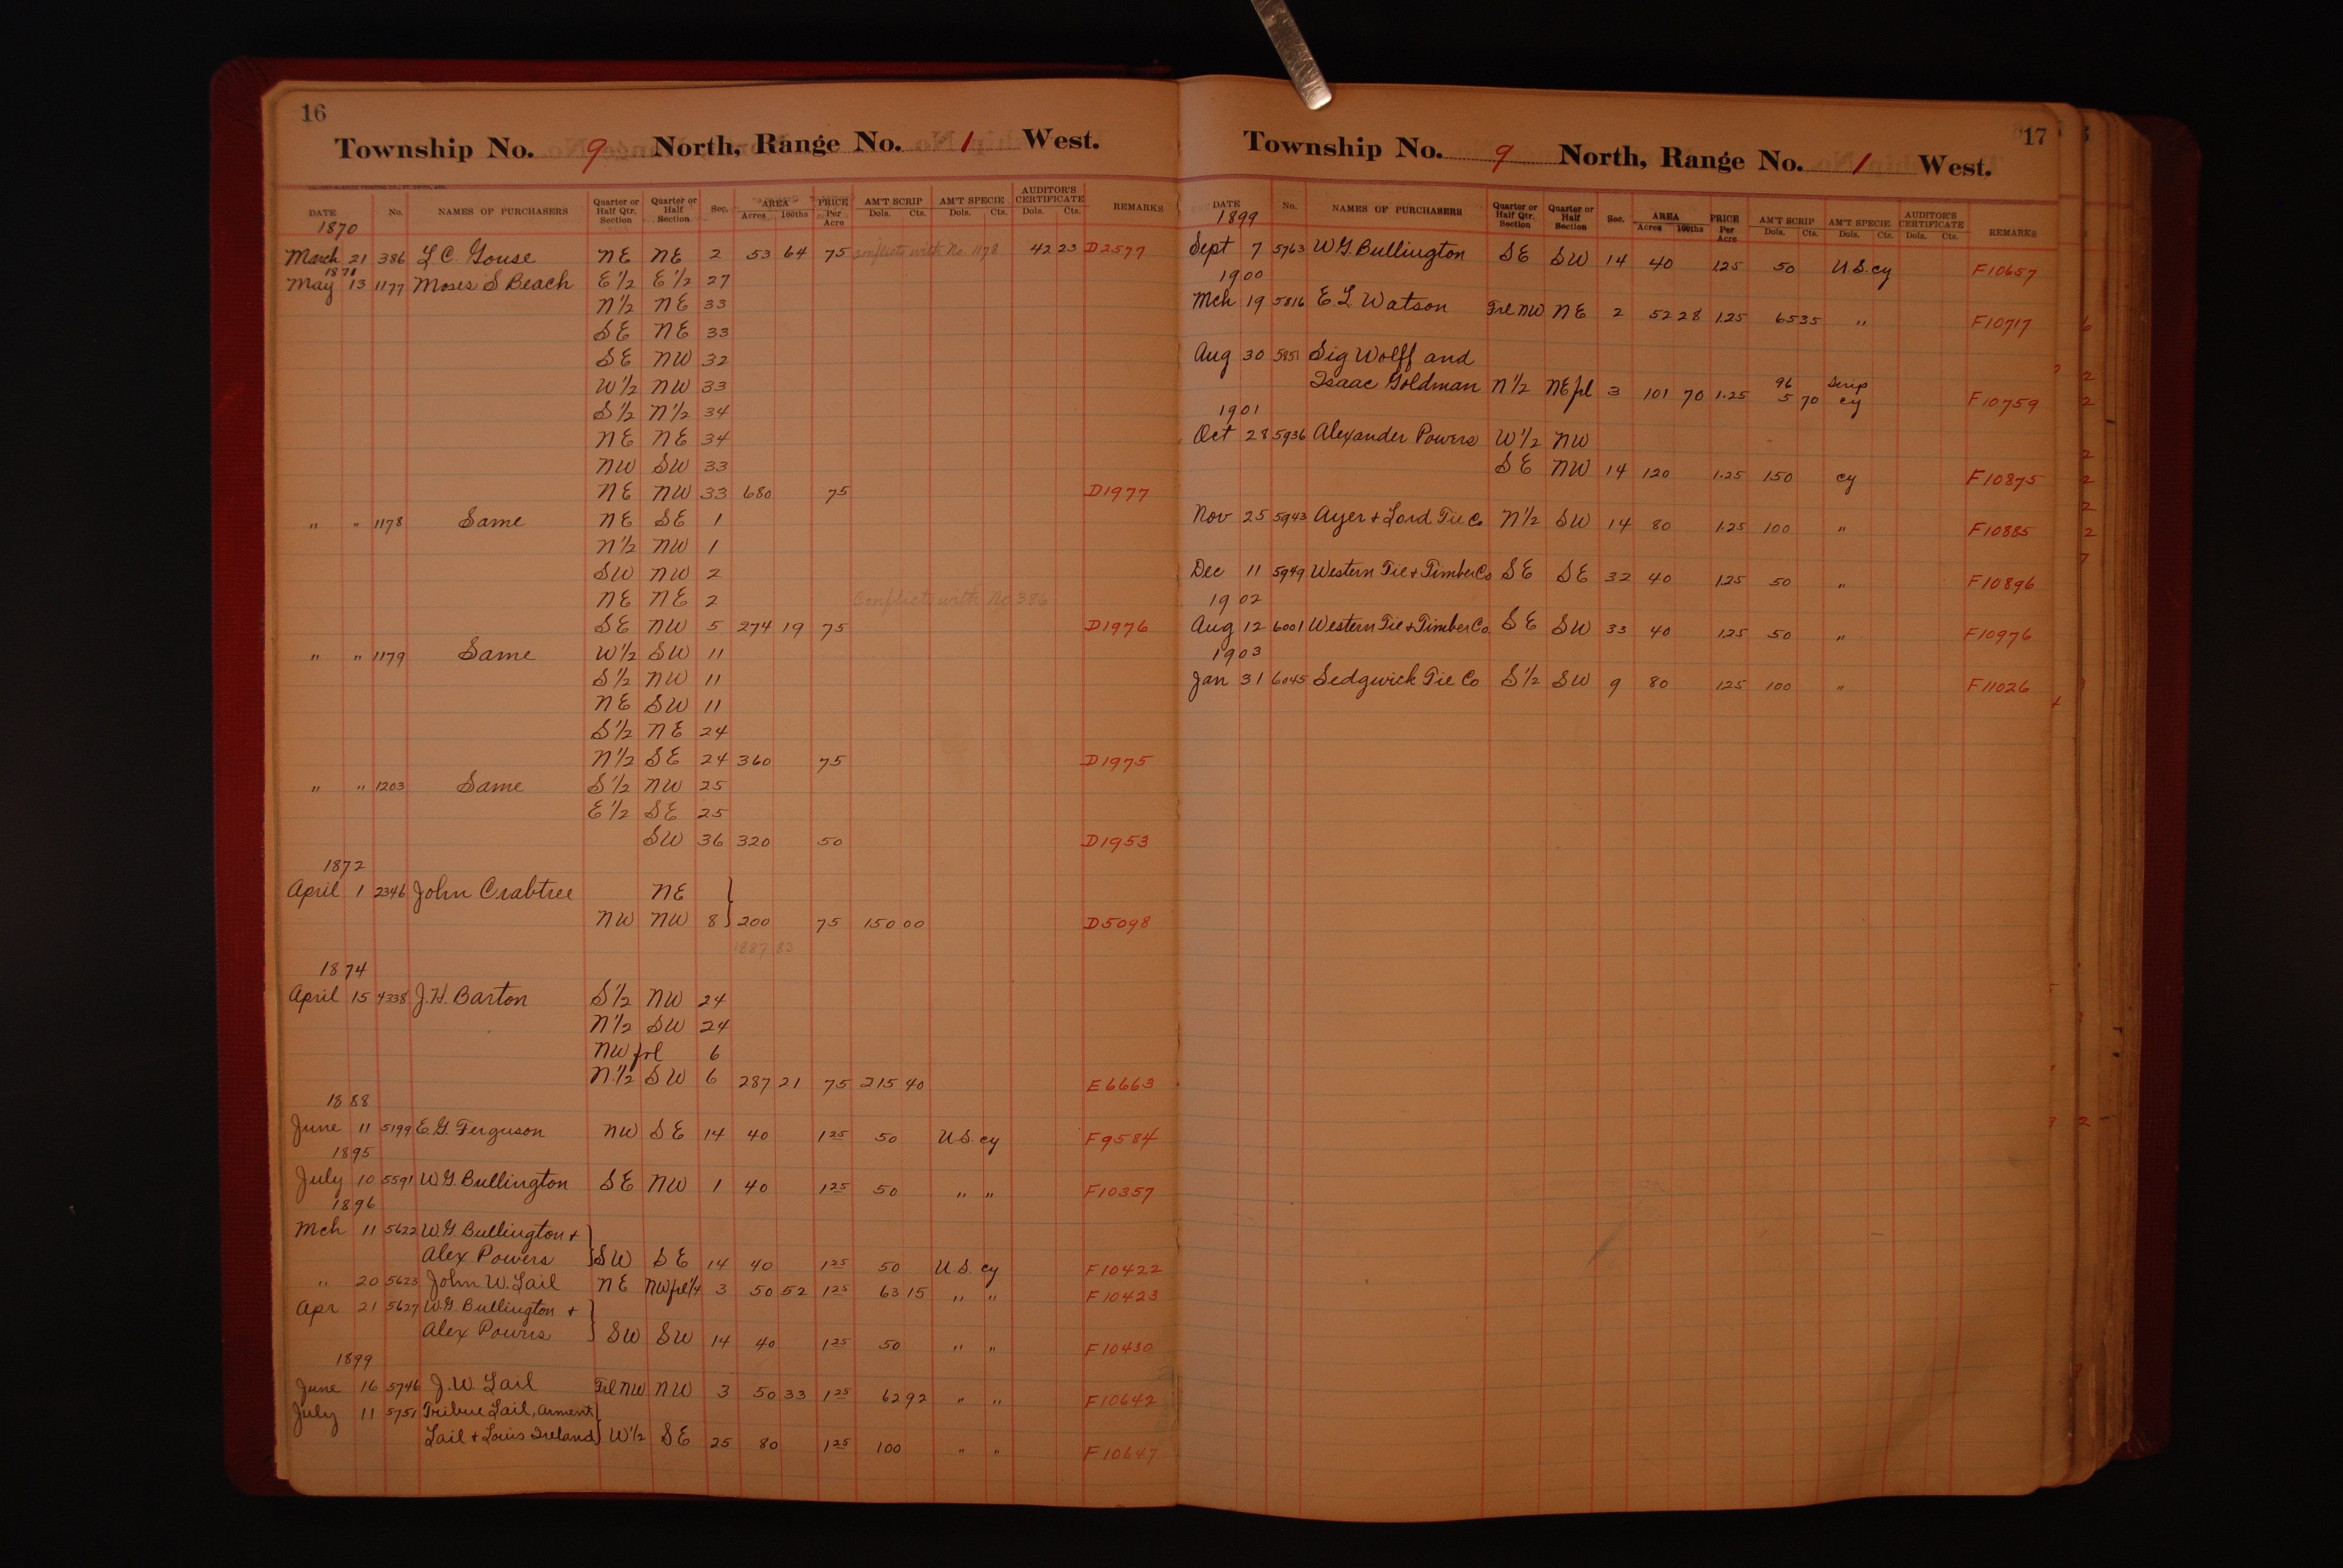 16
Township No. 9 North, Range No. 1 West.
DATE No. NAMES OF PURCHASERS Quarter or Half Qtr. Section Quarter or Half Section Sec. AREA Acres 100ths PRICE Per Acre AM'T SCRIP Dols. Cts. AM'T SPECIE Dols. Cts. AUDITOR'S CERTIFICATE Dols. Cts. REMARKS
1870
March 21 386 L C. Gouse NE NE 2 53 64 75 Conflicts with No. 1178 42 23 D2577
1871
May 13 1177 Moses S Beach E 1/2 E 1/2 27
N 1/2 NE 33
SE NE 33
SE NW 32
W 1/2 NW 33
S 1/2 N 1/2 34
NE NE 34
NW SW 33
NE NW 33 680 75 D1977
" " 1178 Same NE SE 1
N 1/2 NW 1
SW NW 2
NE NE 2 Conflicts with No 386
SE NW 5 274 19 75 D1976
" " 1179 Same W 1/2 SW 11
S 1/2 NW 11
NE SW 11
S 1/2 NE 24
N 1/2 SE 24 360 75 D1975
" " 1203 Same S 1/2 NW 25
E 1/2 SE 25
SW 36 320 50 D1953
1872
April 1 2346 John Crabtree NE
NW NW 8 200 75 150 00 D5098
1887 83
1874
April 15 4338 J. H. Barton S 1/2 NW 24
N 1/2 SW 24
NW frl 6
N 1/2 SW 6 287 21 75 215 40 E6663
1888
June 11 5199 E. G. Ferguson NW SE 14 40 1 25 50 U S. cy F9584
1895
July 10 5591 W. G. Bullington SE NW 1 40 1 25 50 " " F10357
1896
Mch 11 5622 W. G. Bullington +
Alex Powers SW SE 14 40 1 25 50 U S. cy F10422
" 20 5623 John W. Lail NE NW frl 1/4 3 50 52 1 25 63 15 " " F10423
Apr 21 5627 W. G. Bullington +
Alex Powers SW SW 14 40 1 25 50 " " F10430
1899
June 16 5746 J. W. Lail Frl NW NW 3 50 33 1 25 62 92 " " F10642
July 11 5751 Tribue Lail, Arment
Lail + Louis Ireland W 1/2 SE 25 80 1 25 100 " " F10647
17
Township No. 9 North, Range No. 1 West.
DATE No. NAMES OF PURCHASERS Quarter or Half Qtr. Section Quarter or Half Section Sec. AREA Acres 100ths PRICE Per Acre AM'T SCRIP Dols. Cts. AM'T SPECIE Dols. Cts. AUDITOR'S CERTIFICATE Dols. Cts. REMARKS
1899
Sept 7 5763 W. G. Bullington SE SW 14 40 1.25 50 U.S. cy F10657
1900
Mch 19 5816 E. L. Watson Frl NW NE 2 52 28 1.25 65 35 " F10717
Aug 30 5851 Sig Wolff and
Isaac Goldman N 1/2 NE frl 3 101 70 1.25 96 Scrip 5 70 cy F10759
1901
Oct 28 5936 Alexander Powers W 1/2 NW
SE NW 14 120 1.25 150 cy F10875
Nov 25 5943 Ayer + Lord Tie Co N 1/2 SW 14 80 1.25 100 " F10885
Dec 11 5949 Western Tie + Timber Co SE SE 32 40 1.25 50 " F10896
1902
Aug 12 6001 Western Tie + Timber Co. SE SW 33 40 1.25 50 " F10976
1903
Jan 31 6045 Sedgwick Tie Co S 1/2 SW 9 80 1.25 100 " F11026